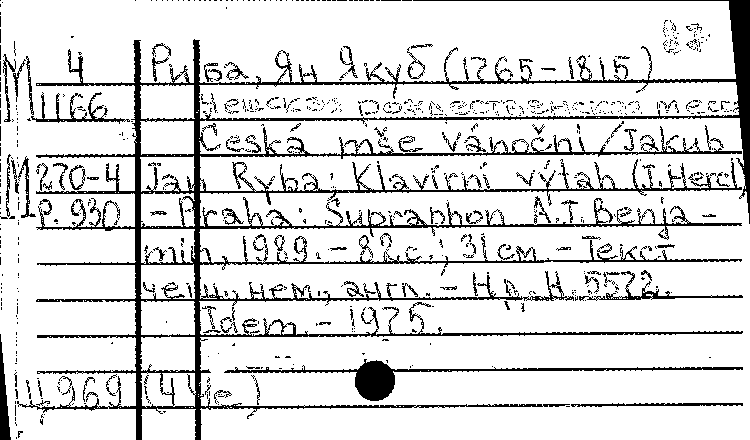 87
М 4 Риба, Ян Якуб (1765-1815)
1166 Чешская рождественская месса
Česká mše vánoční / Jakub
М 270-4 Jan Ryba; Klavírní výtah (J. Hercl)
Р. 930 .- Praha: Supraphon A.T. Benja-
min, 1989. - 82 с.; 31 см. - Текст
чеш., нем., англ. - Н.д. H. 5572.
Idem. - 1975.
Щ969 (4Че)